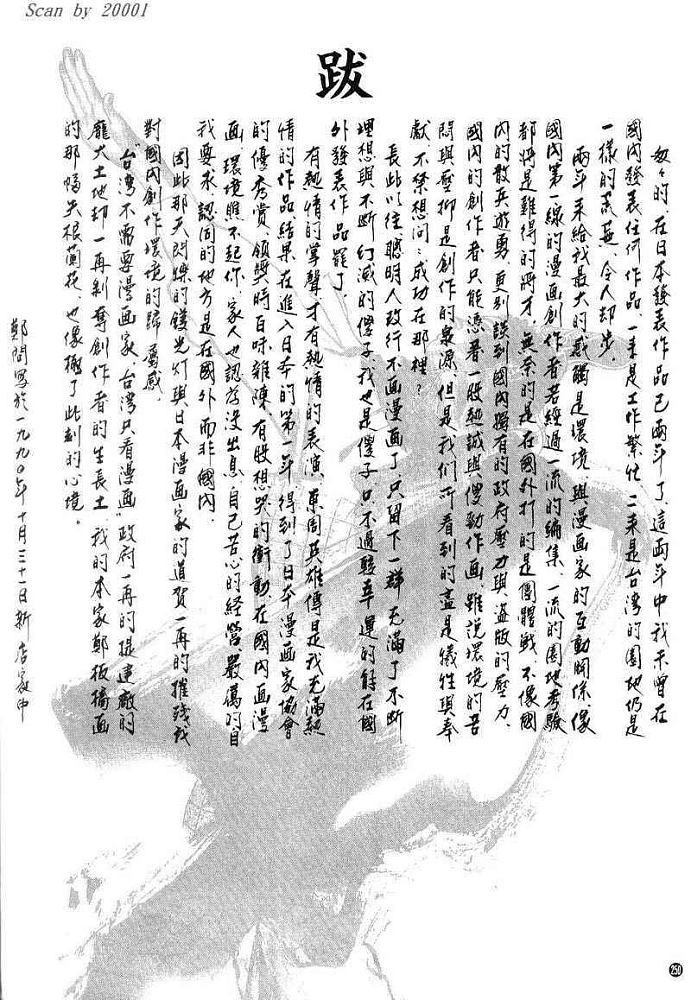 Scan by 20001
跋
匆匆的,在日本發表作品已兩年了,這兩年中我未曾在
國內發表任何作品,一來是工作繁忙,二來是台灣的園地仍是
一樣的荒蕪,令人却步。
兩年來給我最大的感觸是環境與漫画家的互動關係,像
國內第一線的漫画創作者若經過一流的編集、一流的園地考驗
都將是難得的將才,無奈的是在國外打的是團體戰,不像國
內的散兵遊勇,更別談到國內獨有的政府壓力與盜版的壓力,
國內的創作者只能憑著一股熱誠與傻勁作画,雖說環境的苦
悶與壓抑是創作的泉源,但是我們所看到的盡是犧牲與奉
獻,不禁想問:成功在那裡?
長此以往聰明人改行不画漫画了,只留下一群充滿了不斷
理想與不斷幻滅的傻子,我也是傻子,只不過較幸運的能在國
外發表作品罷了。
有熱情的掌聲才有熱情的表演,東周英雄傳是我充滿熱
情的作品,結果在進入日本的第一年得到了日本漫画家協會
的優秀賞,領獎時百味雜陳,有股想哭的衝動,在國內画漫
画,環境瞧不起你,家人也認為沒出息,自己苦心的經營、嚴厲的自
我要求,認同的地方是在國外,而非國內。
因此那天閃爍的鎂光灯與日本漫画家的道賀一再的摧殘我
對國內創作環境的歸屬感。
台灣不需要漫画家,台灣只看漫画,政府一再的擴建廠的
龐大土地却一再剝奪創作者的生長土,我的本家鄭板橋画
的那幅失根蘭花,也像極了此刻的心境。
鄭問寫於一九九〇年十月三十日新店家中
250